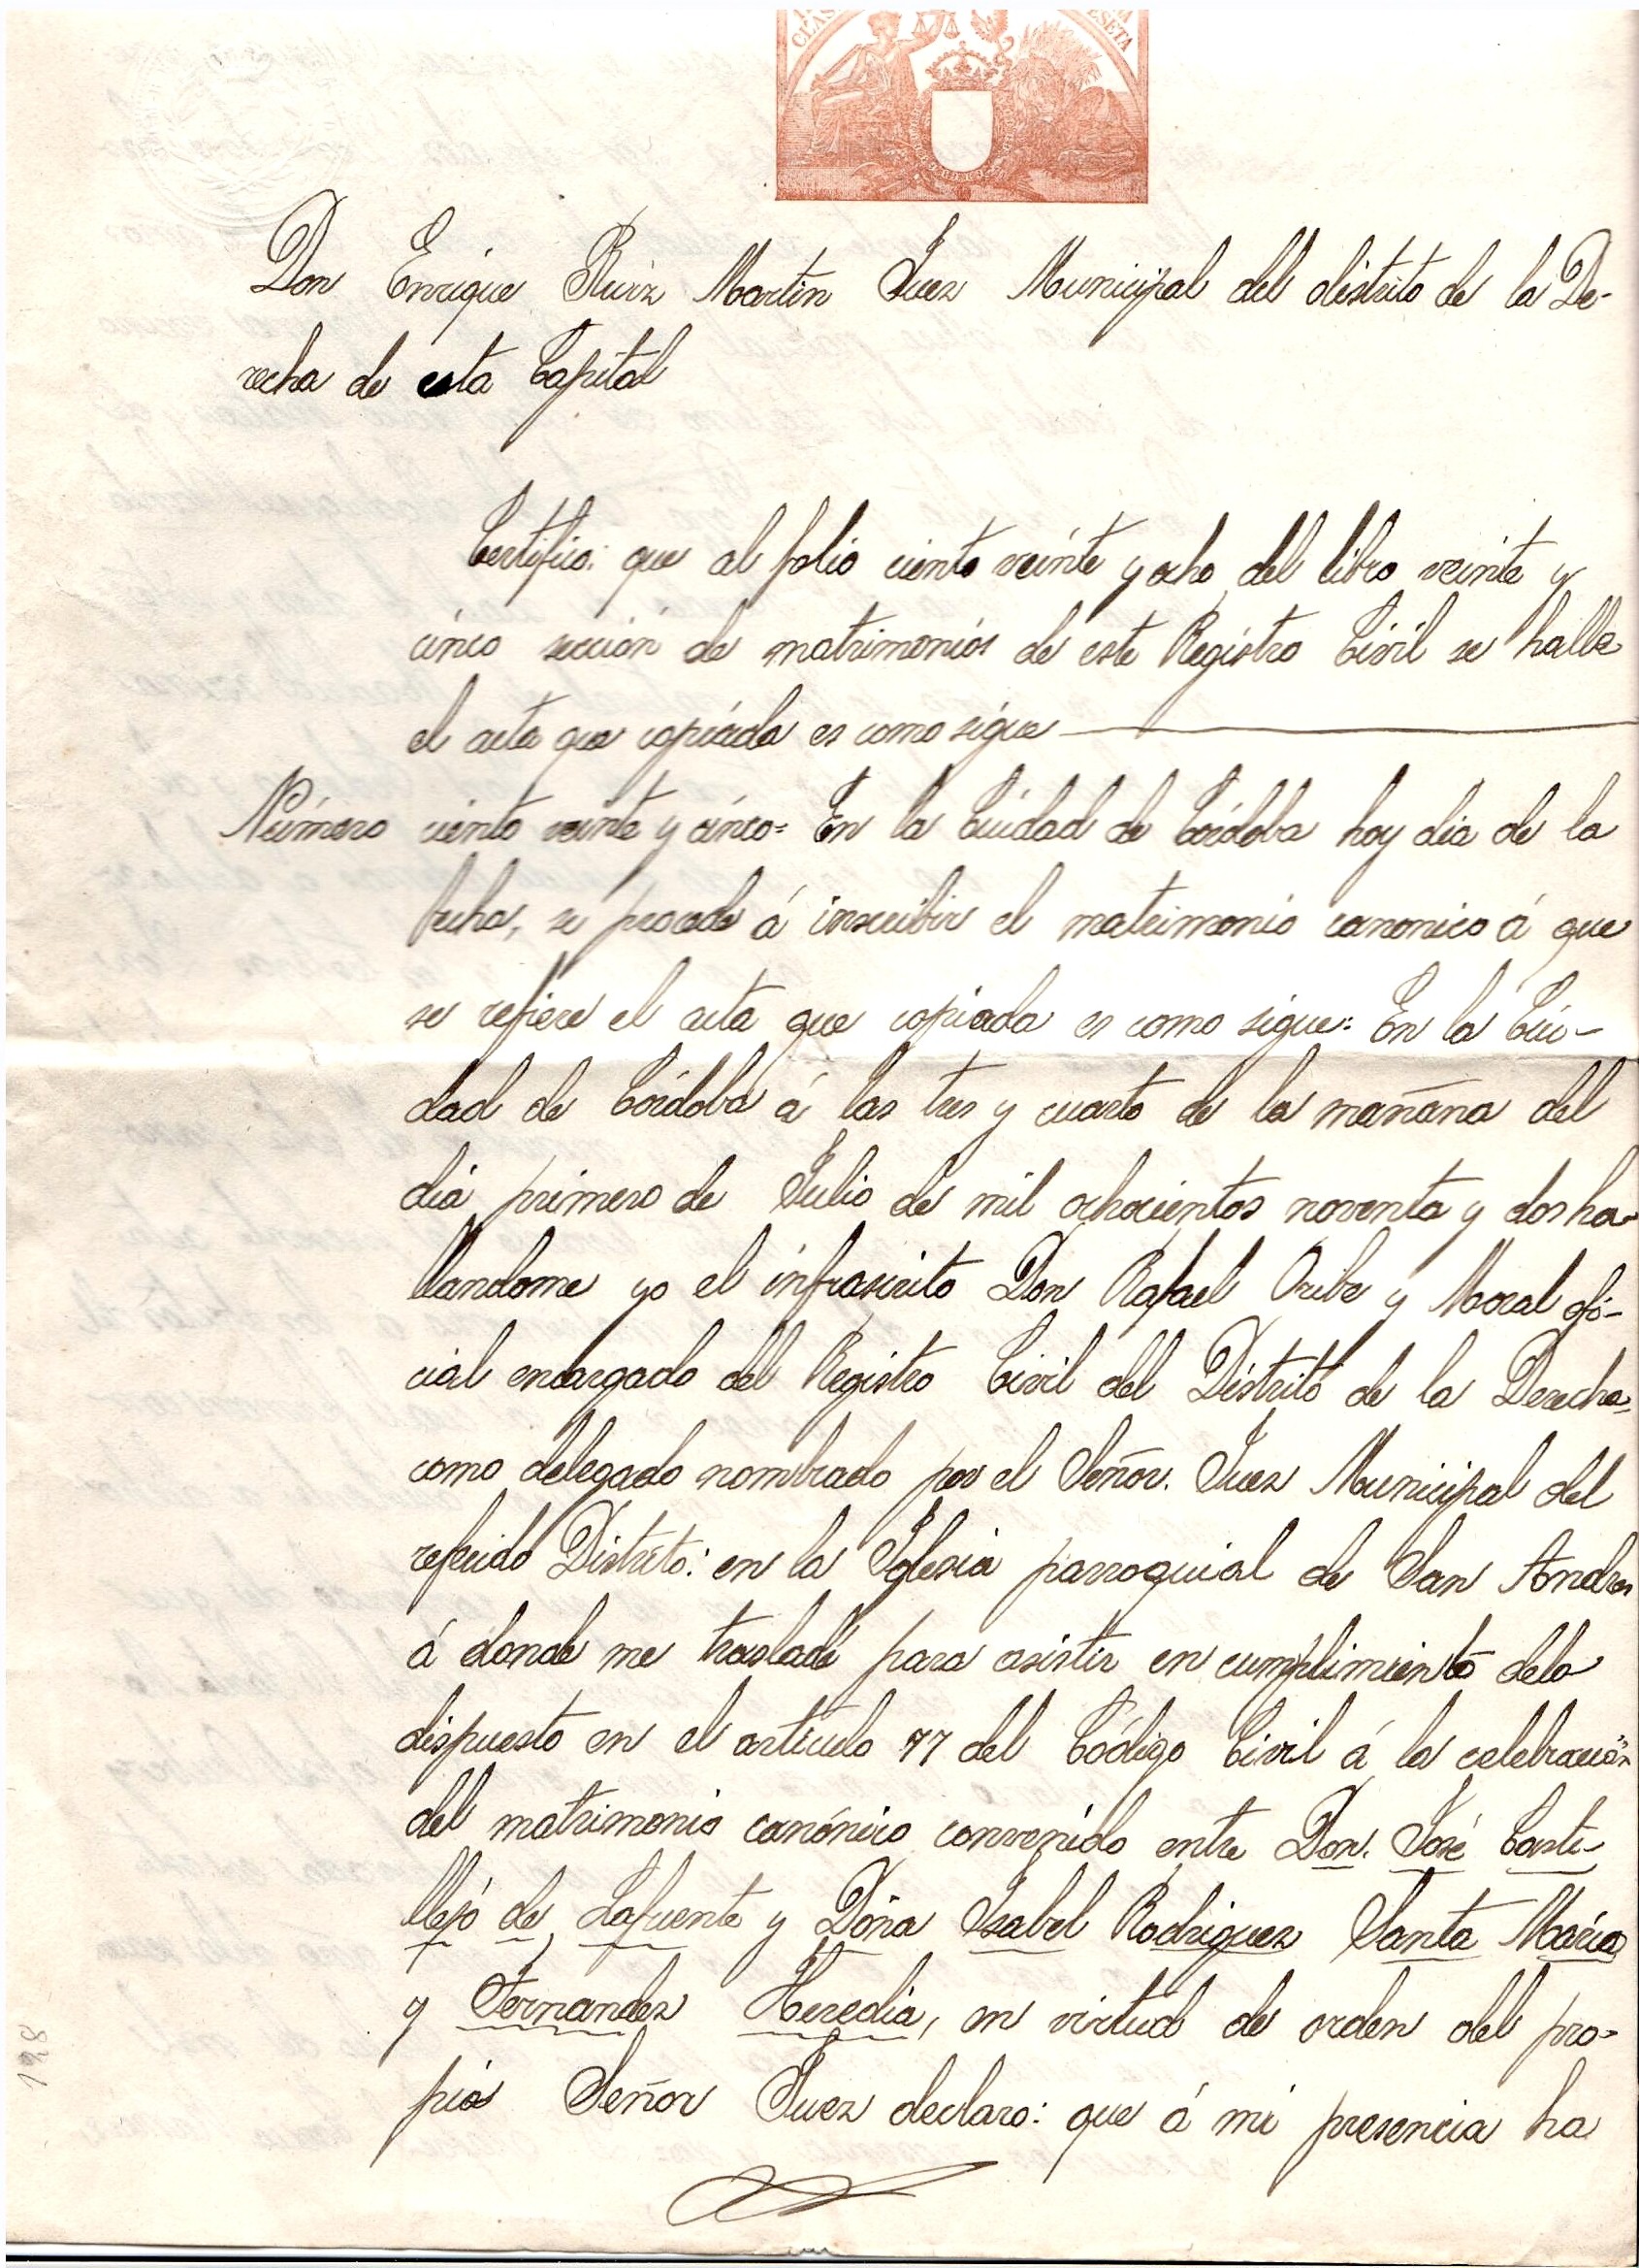 Don Enrique Ruiz Martin Juez Municipal del distrito de la De-
recha de esta Capital
Certifico: que al folio ciento veinte y ocho del libro veinte y
cinco sección de matrimonios de este Registro Civil se halla
el acta que copiada es como sigue
Número ciento veinte y cinco= En la Ciudad de Córdoba hoy dia de la
fecha, se procede á inscribir el matrimonio canonico á que
se refiere el acta que copiada es como sigue: En la Ciu-
dad de Córdoba á las tres y cuarto de la mañana del
dia primero de Julio de mil ochocientos noventa y dos ha-
llandome yo el infrascrito Don Rafael Oribe y Moral ofi-
cial encargado del Registro Civil del Distrito de la Derecha
como delegado nombrado por el Señor. Juez Municipal del
referido Distrito: en la Iglesia parroquial de San Andres
á donde me trasladé para asistir en cumplimiento delo
dispuesto en el articulo 77 del Código Civil á la celebración
del matrimonio canónico convenido entre Don. José Casti-
llejo de Lafuente y Doña Isabel Rodriguez Santa Maria
y Fernandez Heredia, en virtud de orden del pro-
pio Señor Juez declaro: que á mi presencia ha
198